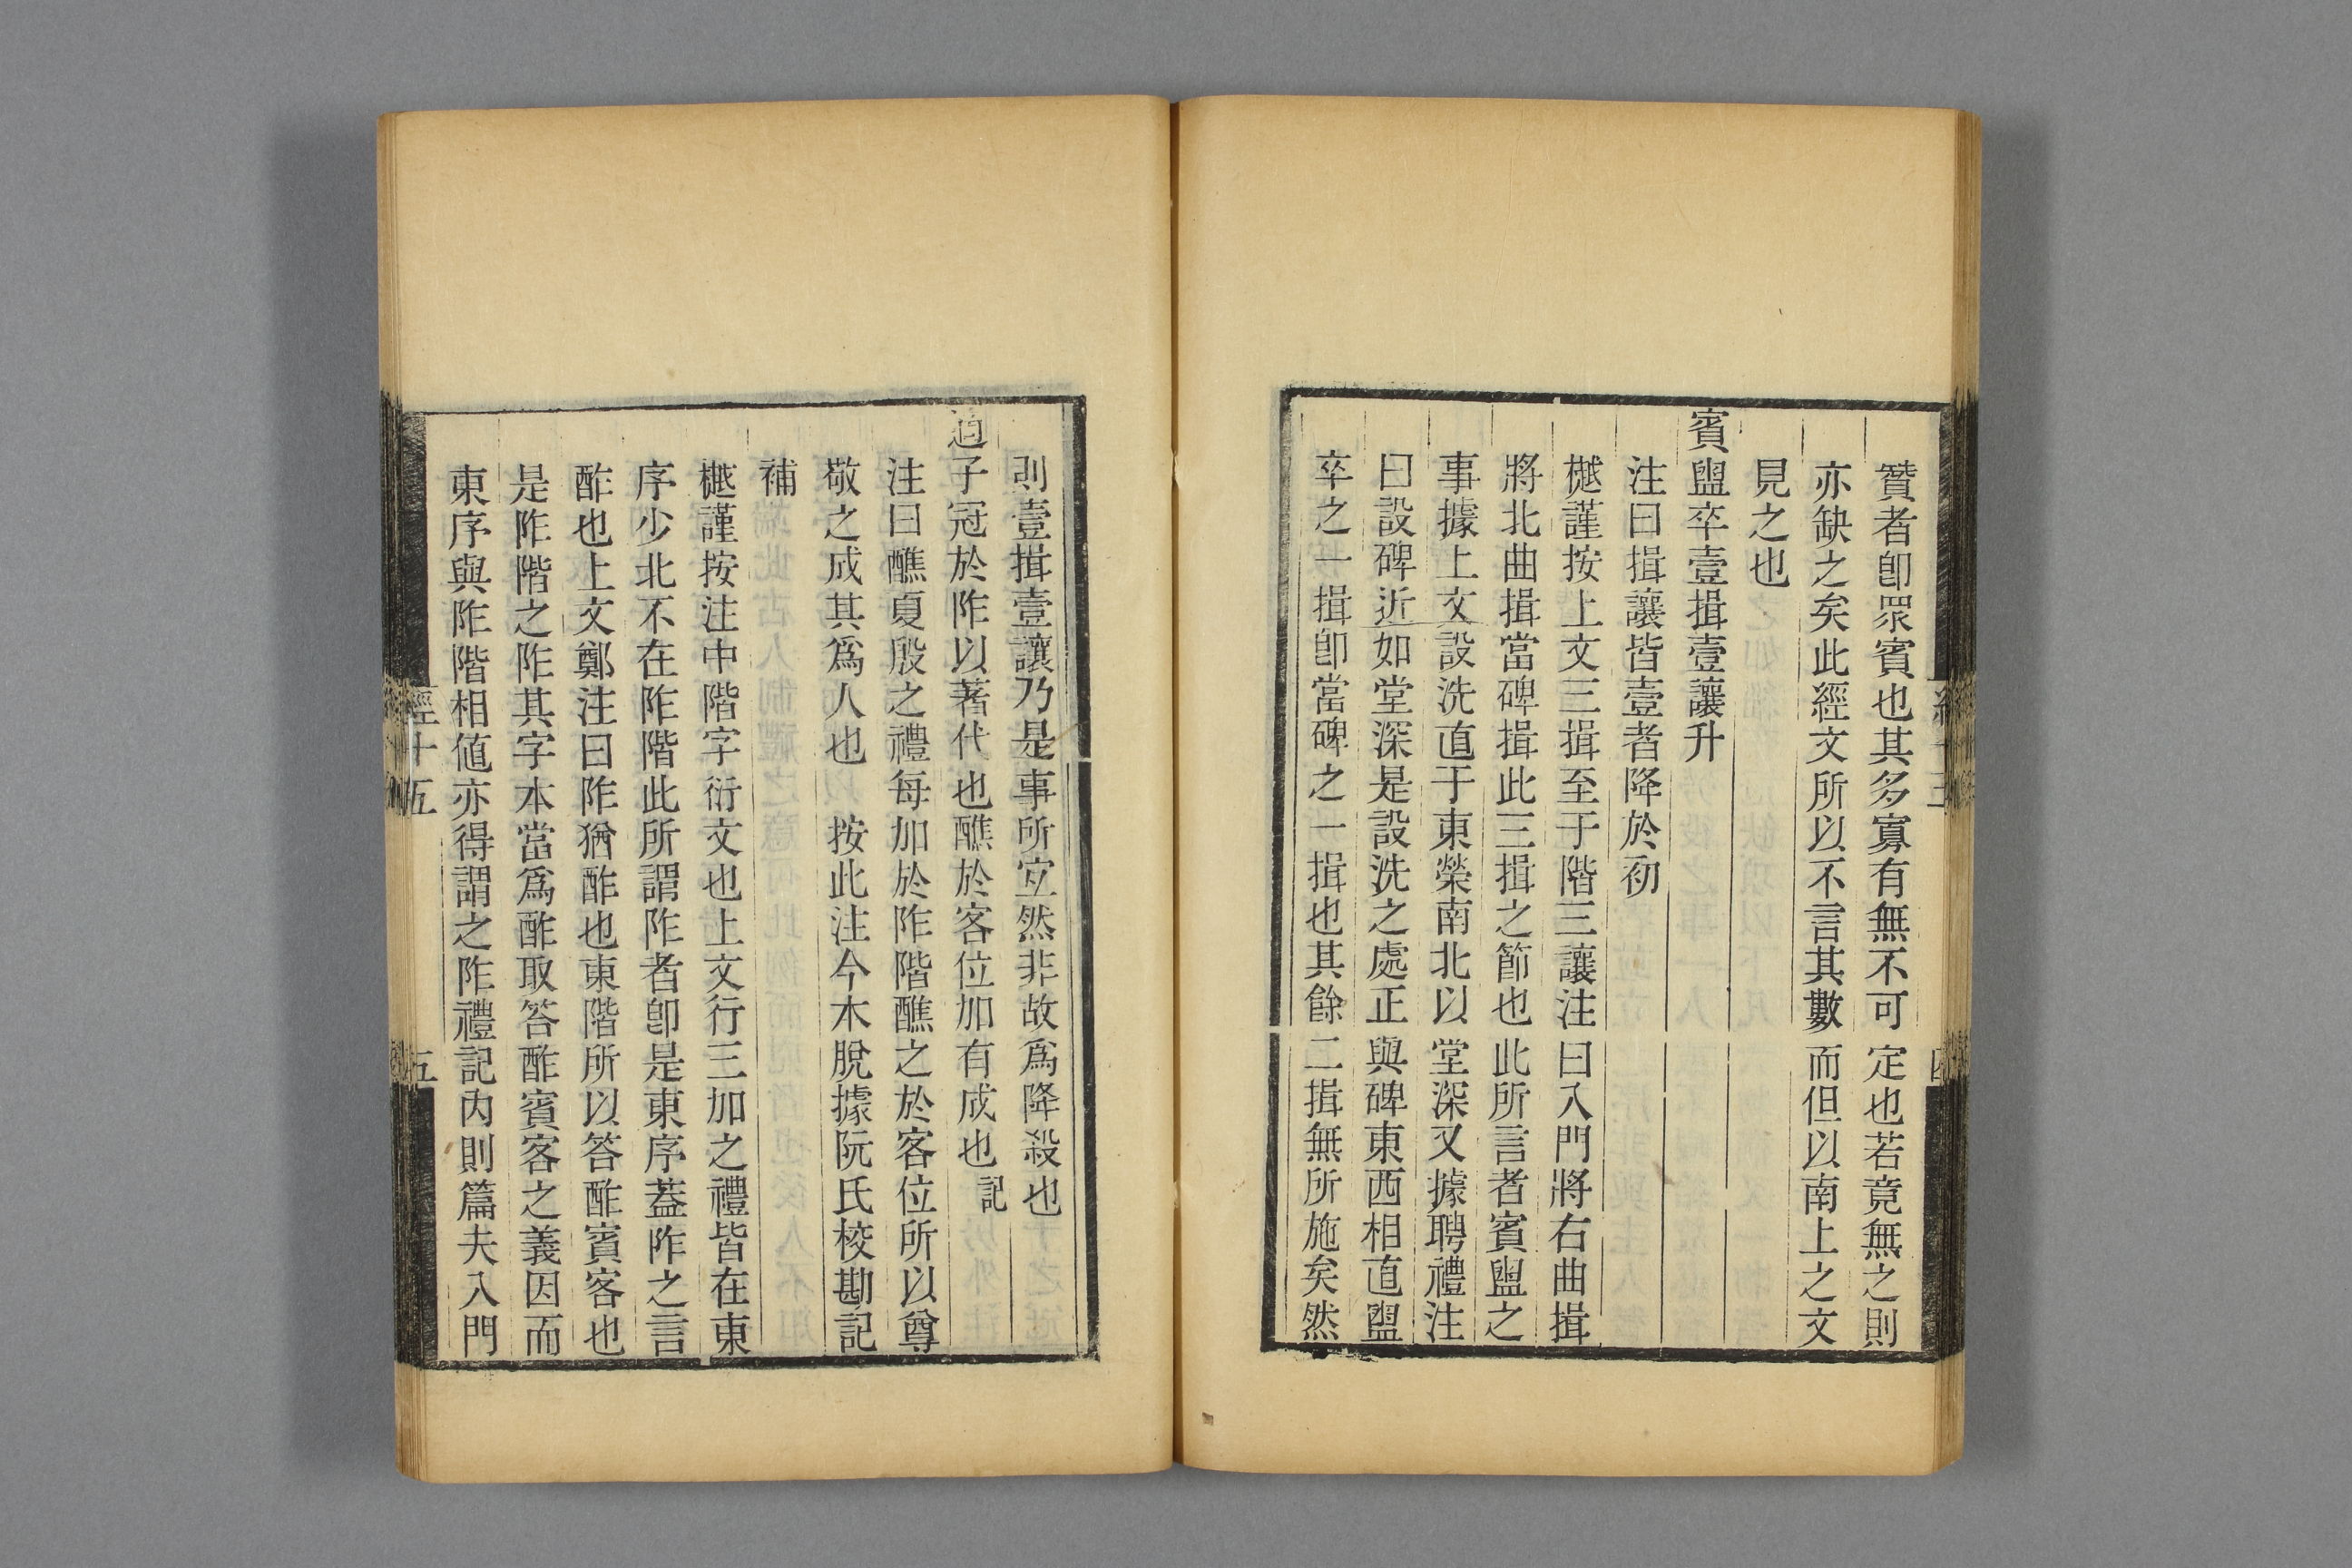 贊者卽眾賓也其多寡有無不可定也若竟無之則
亦缺之矣此經文所以不言其數而但以南上之文
見之也
賓盥卒壹揖壹讓升
注曰揖讓皆壹者降於初
樾謹按上文三揖至于階三讓注曰入門將右曲揖
將北曲揖當碑揖此三揖之節也此所言者賓盥之
事據上文設洗直于東榮南北以堂深又據聘禮注
曰設碑近如堂深是設洗之處正與碑東西相直盥
卒之一揖卽當碑之一揖也其餘二揖無所施矣然
則壹揖壹讓乃是事所宜然非故爲降殺也
適子冠於阼以著代也醮於客位加有成也記
注曰醮夏殷之禮每加於阼階醮之於客位所以尊
敬之成其爲人也 按此注今本脫據阮氏校勘記
補
樾謹按注中階字衍文也上文行三加之禮皆在東
序少北不在阼階此所謂阼者卽是東序蓋阼之言
酢也上文鄭注曰阼猶酢也東階所以答酢賓客也
是阼階之阼其字本當爲酢取答酢賓客之義因而
東序與阼階相値亦得謂之阼禮記內則篇夫入門
經十五
五